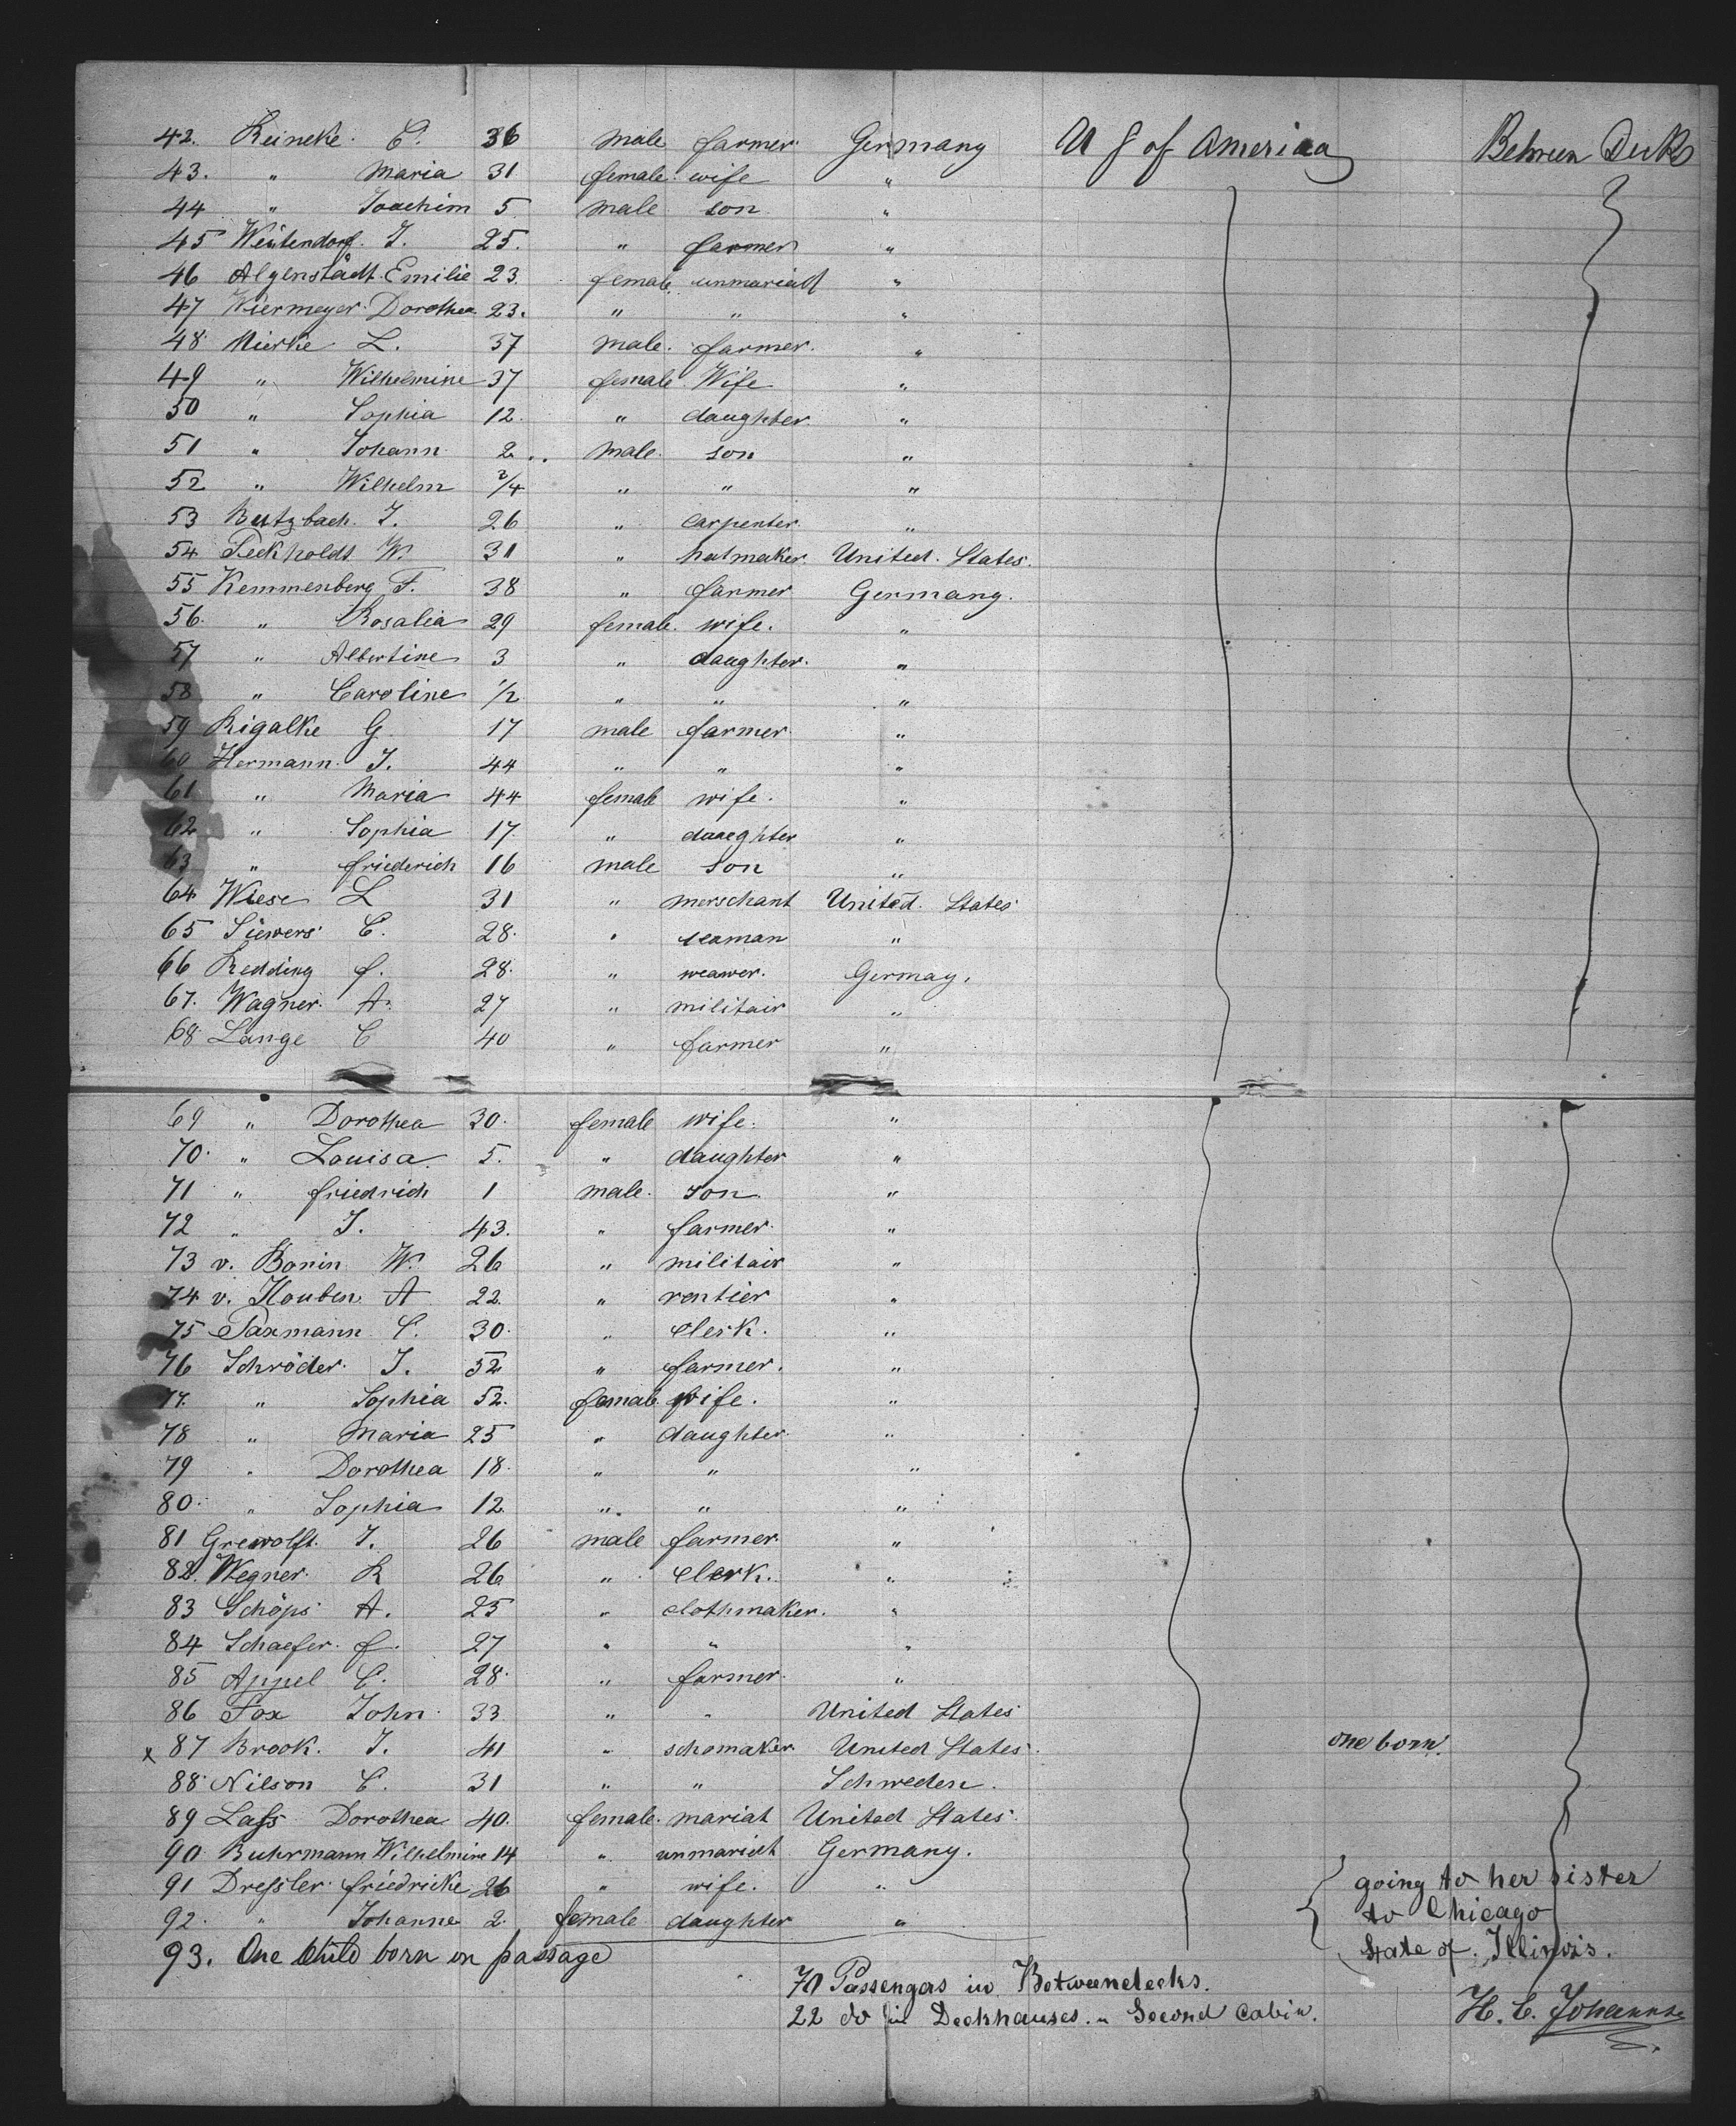 42. Reineke C. 36 male farmer Germany U S of America Between Decks
43. " Maria 31 female wife "
44 " Joachim 5 male son "
45 Weitendorf J. 25. " farmer "
46 Algenstädt Emilie 23. female unmariatt "
47 Wiermeyer Dorothea 23. " " "
48 Mierke L. 37 male. farmer. "
49 " Wilhelmine 37 female Wife "
50 " Sophia 12. " daughter. "
51 " Johann 2 male. son "
52 " Wilhelm 3/4 " " "
53 Butzbach. J. 26 " carpenter. "
54 Peckholdt W. 31 " hatmaker. United. States.
55 Kemmenberg F. 38 " farmer Germany.
56. " Rosalia 29 female. wife. "
57 " Albertine 3 " daughter. "
58 " Caroline 1/2 " " "
59 Rigalke G 17 male farmer "
60 Hermann. J. 44 " " "
61 " Maria 44 female wife. "
62 " Sophia 17. " daughter "
63 " friederich 16 male son "
64 Wiese L 31 " merschant United. States
65 Siewers C. 28. " seaman "
66 Redding f. 28. " weawer. Germay,
67. Wagner. A. 27 " militair "
68 Lange C 40 " farmer "
69 " Dorothea 30. female wife. "
70. " Louisa. 5. " daughter "
71 " friedrich 1 male. son. "
72 " J. 43. " farmer. "
73 v. Bonin W. 26 " militair "
74 v. Houben. A 22. " rentier "
75 Paxmann C. 30. " Clerk. "
76 Schröder. J. 52 " farmer. "
77. " Sophia 52. female wife. "
78 " Maria 25 " daughter. "
79 " Dorothea 18. " " "
80. " Sophia 12 " " "
81 Grewolft. J. 26 male farmer. "
82. Wegner. R 26 " Clerk. "
83 Schöps A. 25 " clothmaker. "
84 Schaefer. f. 27 " " "
85 Appel C. 28. " farmer. "
86 Fox John 33 " " United States
x 87 Brook. J. 41 " schomaker United States. one born.
88. Nilson C. 31 " " Schweden.
89 Lass Dorothea 40. female. mariat United States.
90 Buhrmann Wilhelmine 14 " unmariet Germany.
91 Dressler friedricke 26 " wife. " going to her sister
92. " Johanne 2. female daughter " to Chicago
State of Illinois.
93. One Child born on passage
70 Passengers in Betweendecks.
22 do in Deckhauses. " Second Cabin.
H. C. Johannsen